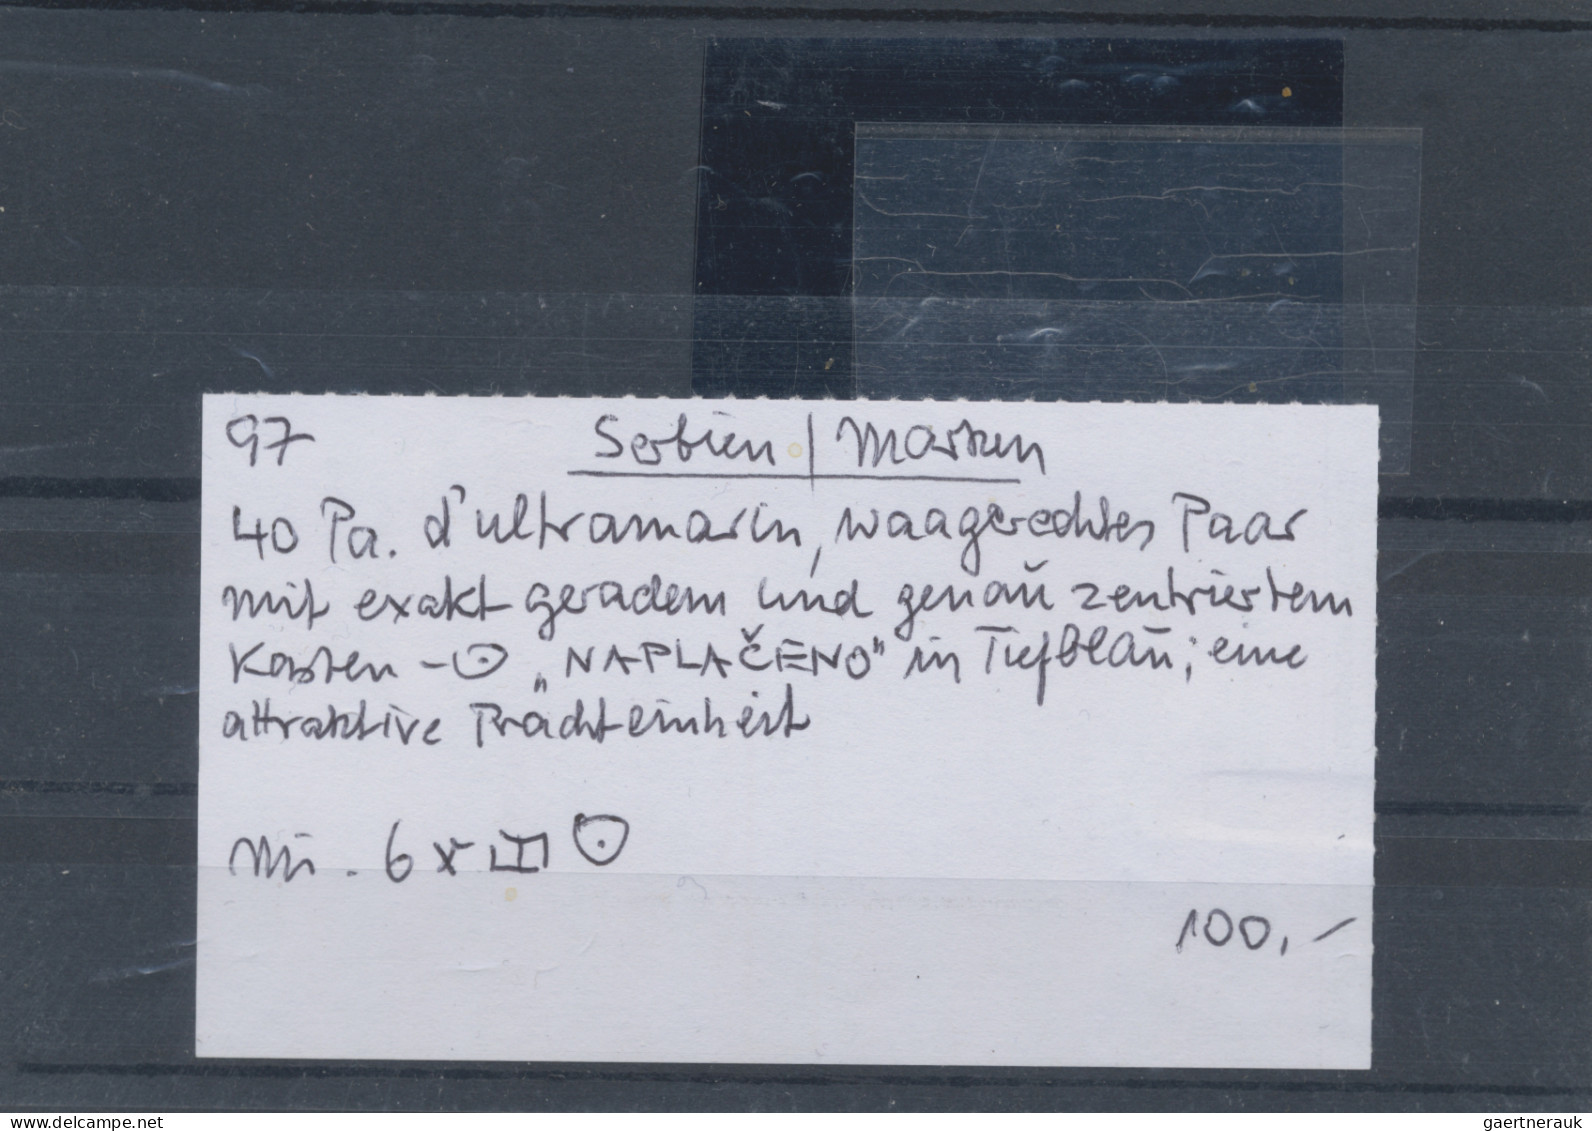 97 Serbien / Marken
40 Pa. d'ultramarin, waagerechtes Paar
mit exakt geradem und genau zentriertem
Kasten-⊙ „NAPLAČENO" in Tiefblau; eine
attraktive Prachteinheit
Mi. 6x ⊙
100,-
www.delcampe.net
gaertnerauk